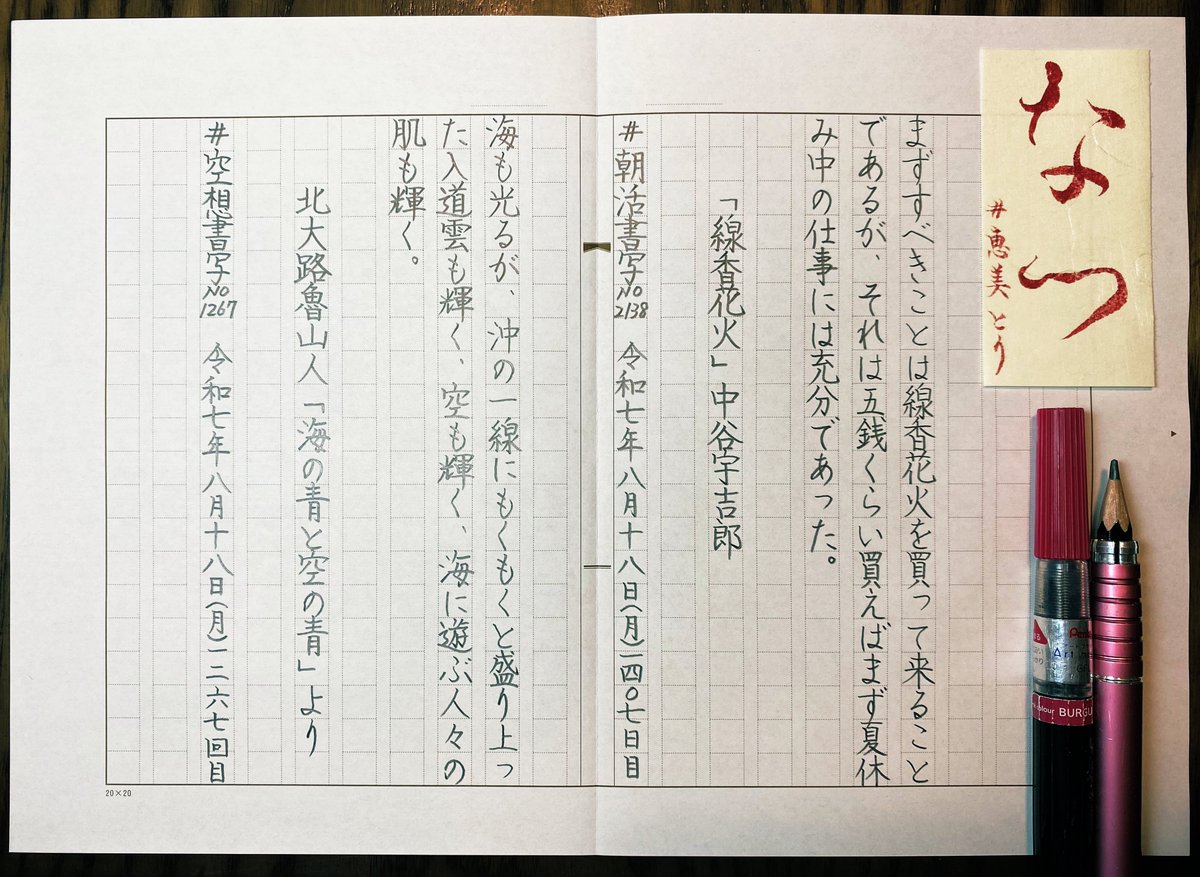 なつ
#恵美とり
まずすべきことは線香花火を買って来ること
であるが、それは五銭くらい買えばまず夏休
み中の仕事には充分であった。
「線香花火」中谷宇吉郎
#朝活書写No2138 令和七年八月十八日(月)一四〇七日目
海も光るが、沖の一線にもくもくと盛り上っ
た入道雲も輝く、空も輝く、海に遊ぶ人々の
肌も輝く。
北大路魯山人「海の青と空の青」より
#空想書写No1267 令和七年八月十八日(月)一二六七回目
20×20
Art
colour BURGU